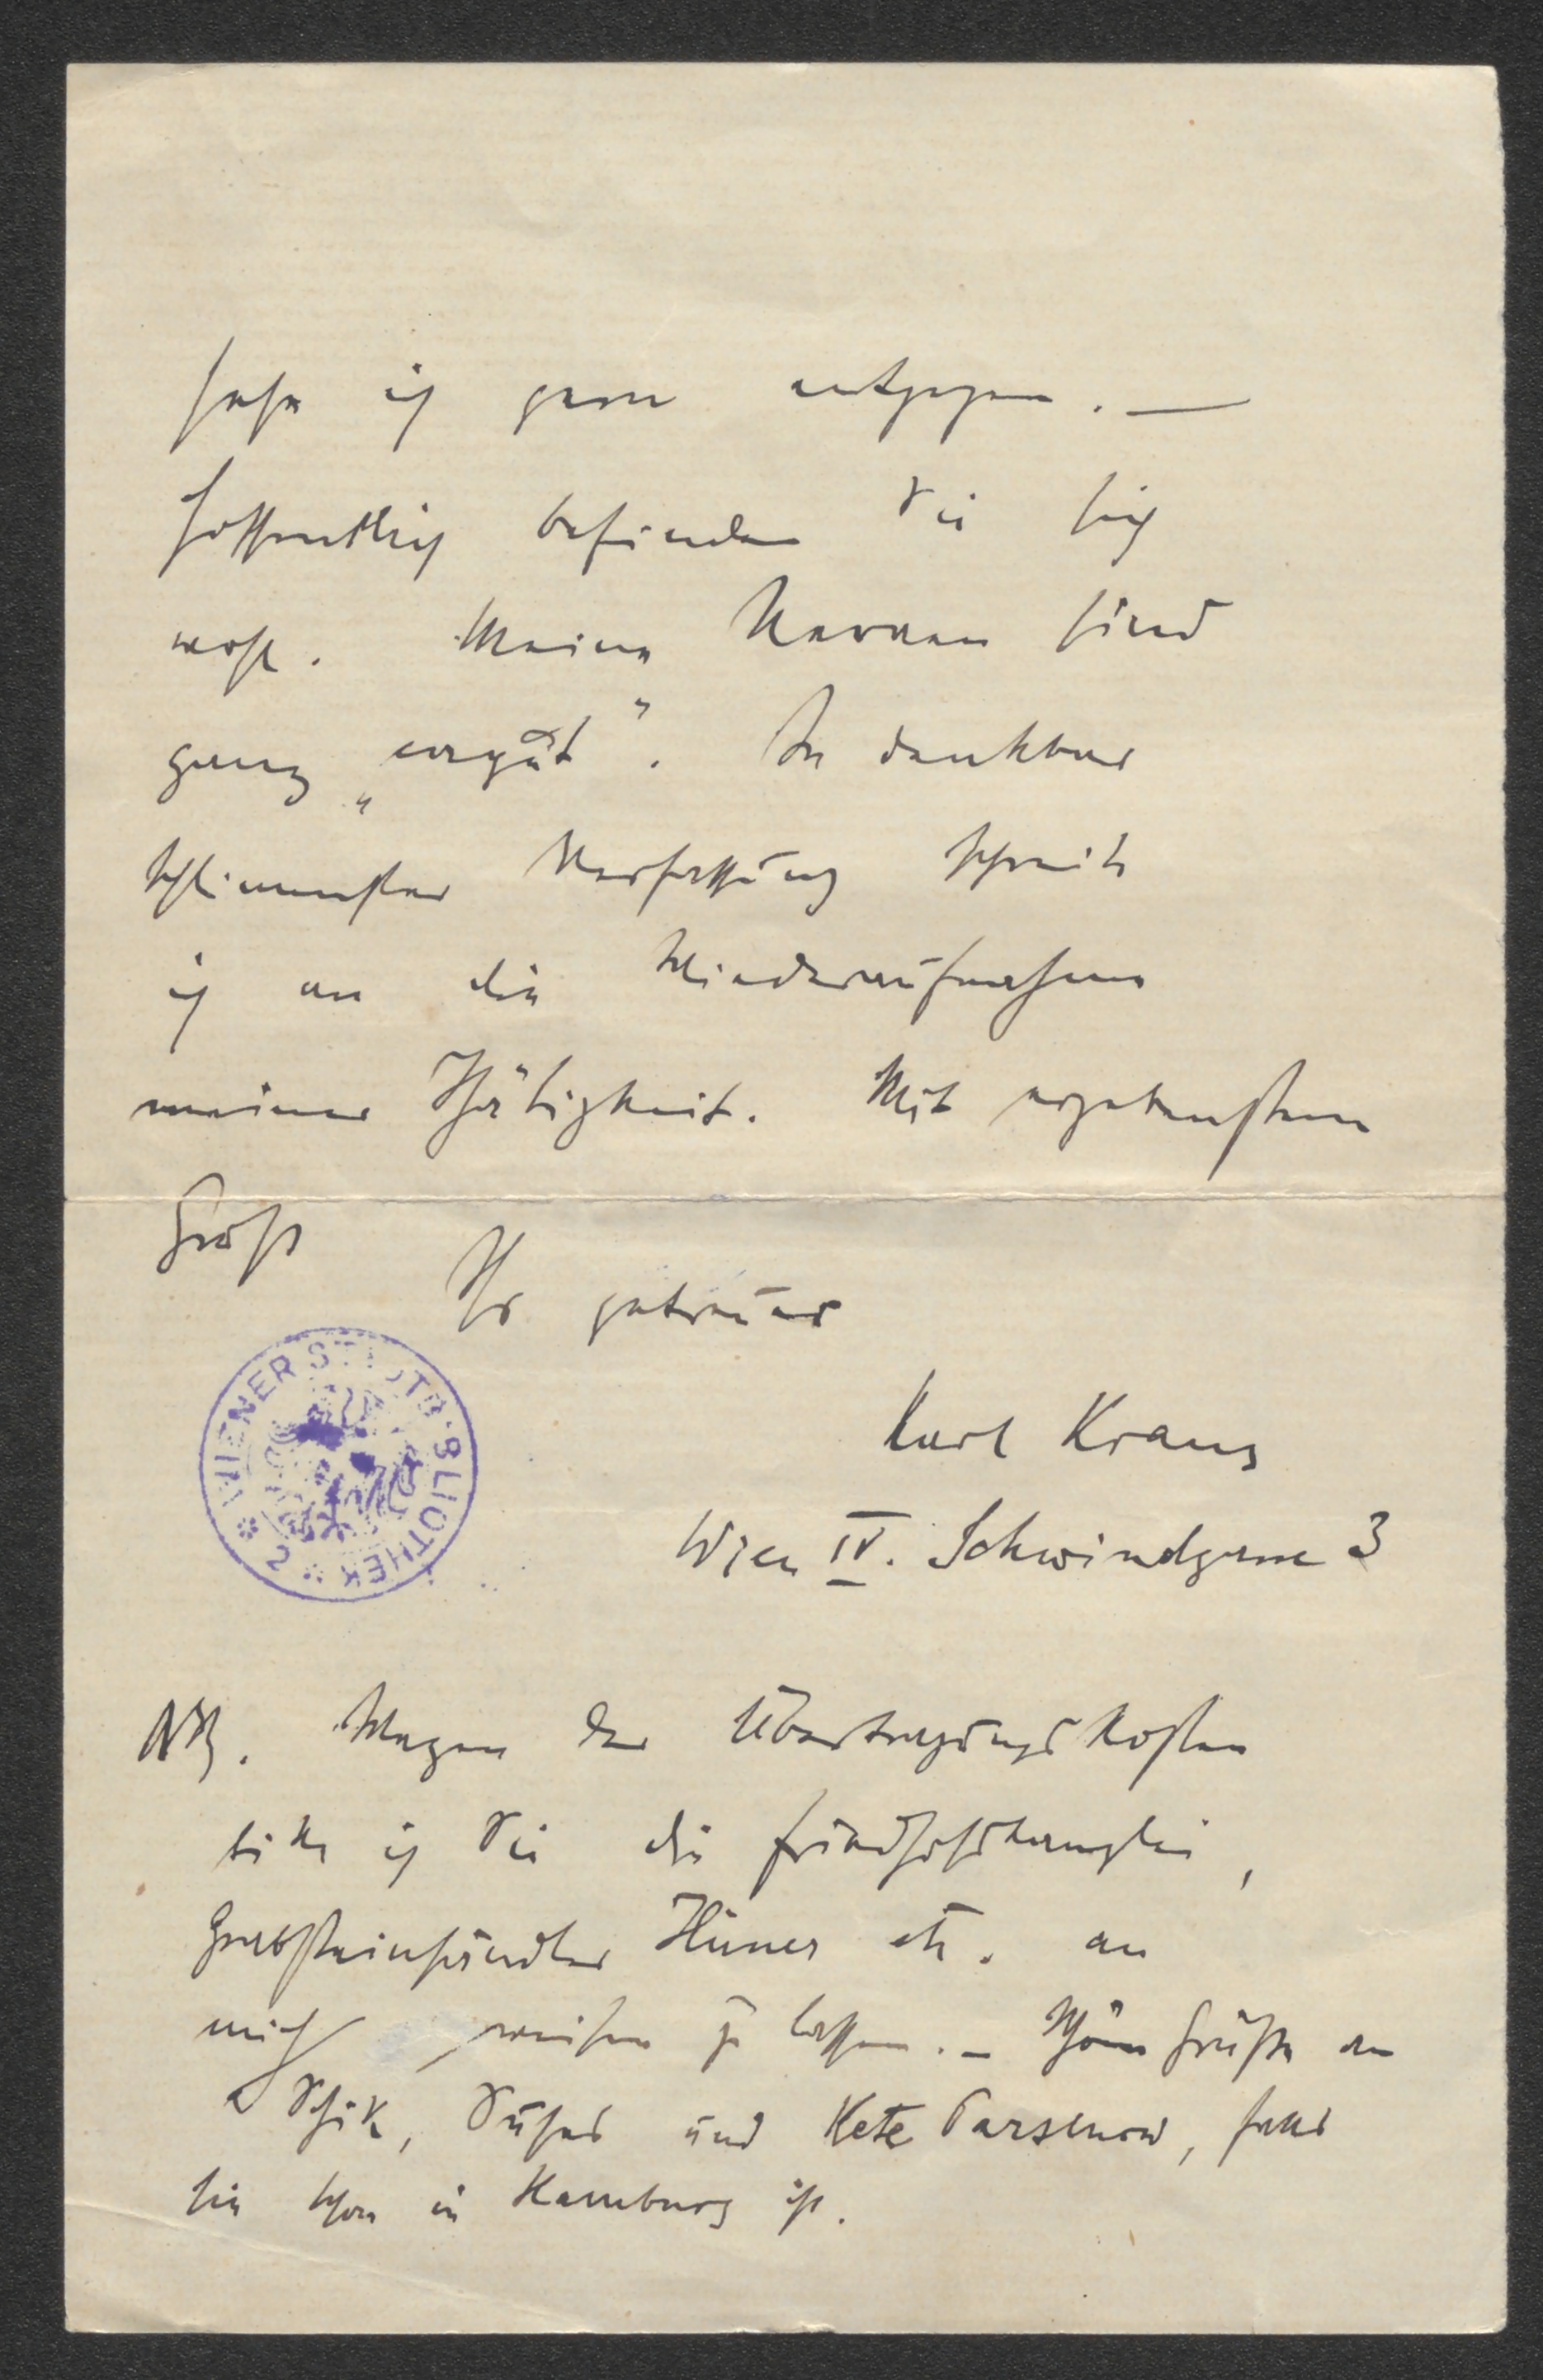 sehe ich gern entgegen. —
Hoffentlich befinden Sie sich
wohl. Meine Nerven sind
ganz „
". In denkbar
schlimmster Verfassung schreite
ich an die Wiederaufnahme
meiner Thätigkeit. Mit ergebenstem
Gruß
Ihr getreuer
Karl Kraus
Wien IV. Schwindgasse 3
WIENER STADTBIBLIOTHEK
NB. Wegen der Übertragungskosten
bitte ich Sie die Friedhofskanzlei,
Grabsteinhändler etc. an
mich weisen zu lassen. – Schöne Grüße an
Schik, und Kete Parsenow, falls
sie schon in Hamburg ist.